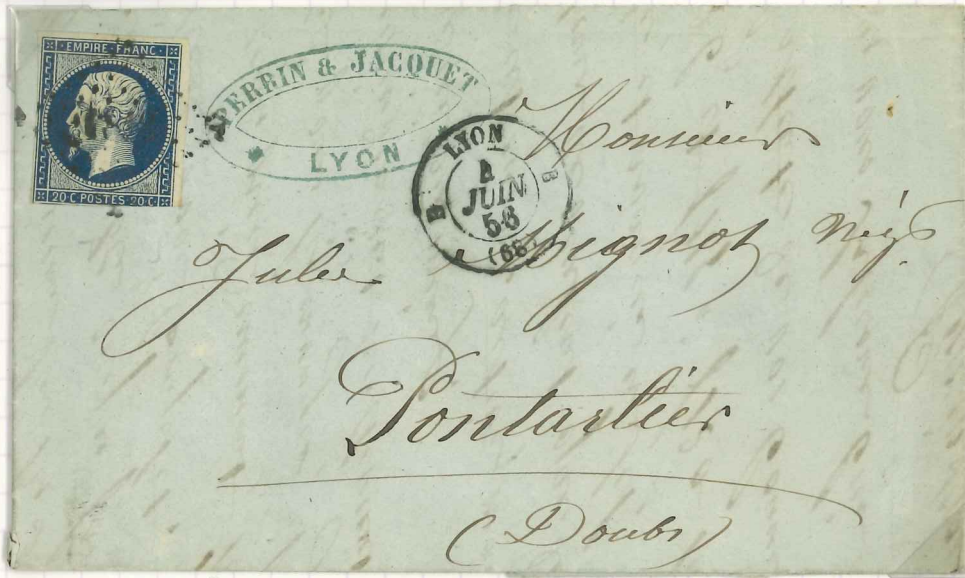 EMPIRE FRANC
20 C POSTES 20 C
PERRIN & JACQUET
LYON
LYON
4
JUIN
56
(68)
B B
Monsieur
Jules Mignot négt
Pontarlier
(Doubs)